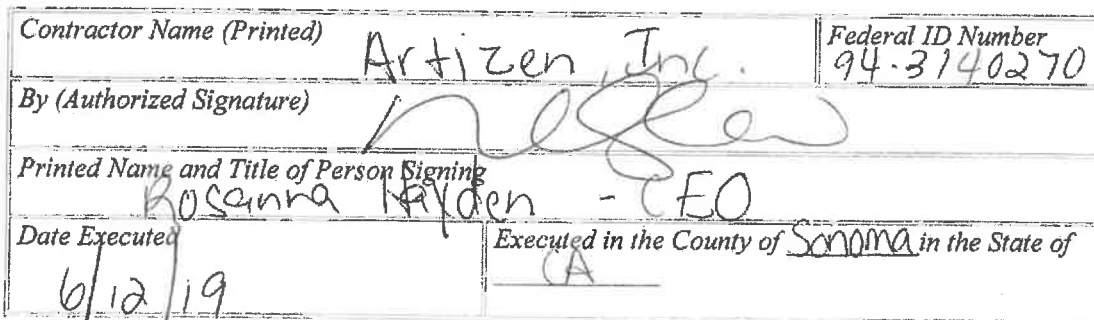 Contractor Name (Printed) Artizen, Inc.
Federal ID Number
94-3140270
By (Authorized Signature)
Printed Name and Title of Person Signing
Rosanna Hayden - CEO
Date Executed
6/12/19
Executed in the County of Sonoma in the State of
CA